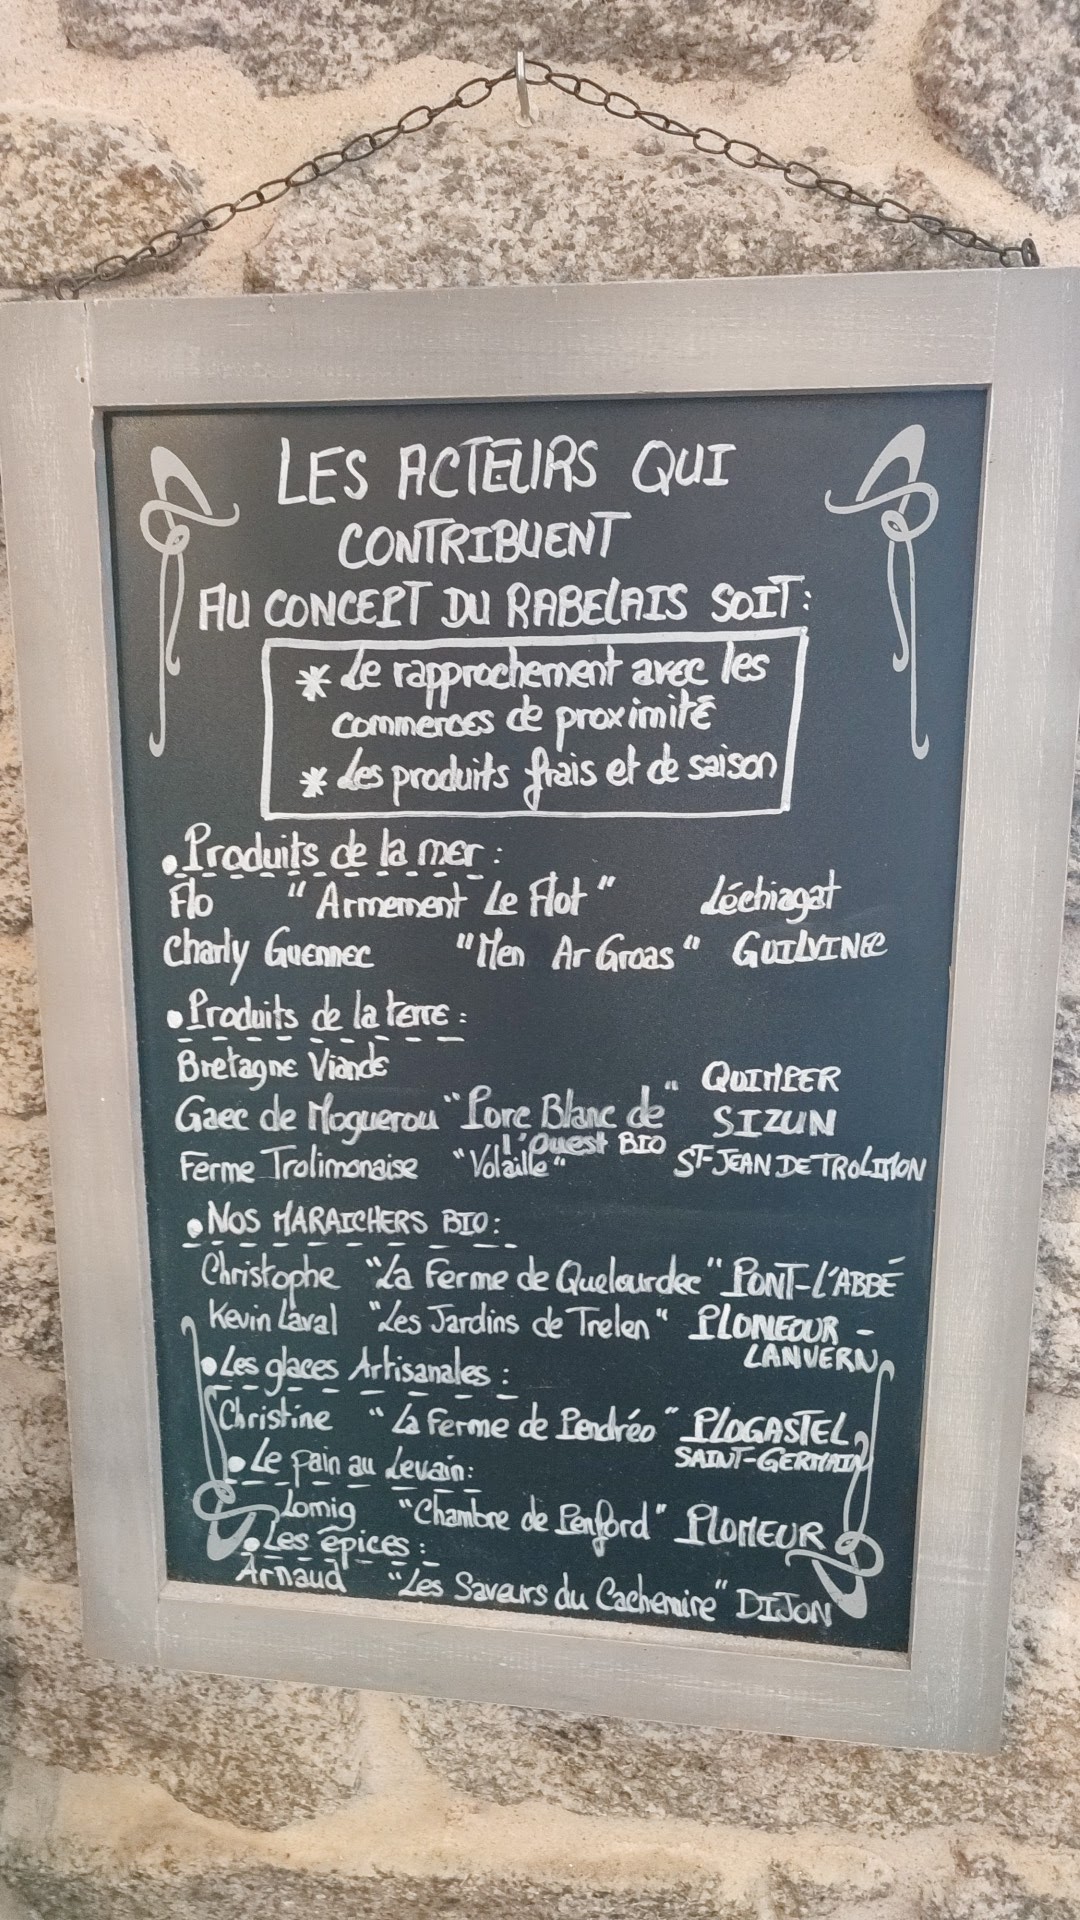 LES ACTEURS QUI
CONTRIBUENT
AU CONCEPT DU RABELAIS SOIT:
* Le rapprochement avec les
commerces de proximité
* Les produits frais et de saison
• Produits de la mer :
Flo "Armement Le Flot" Léchiagat
Charly Guennec "Men Ar Groas" GUILVINEC
• Produits de la terre :
Bretagne Viande QUIMPER
Gaec de Moguerou "Porc Blanc de" SIZUN
l'Ouest BIO
Ferme Trolimonaise "Volaille" ST-JEAN DE TROLIMON
• NOS MARAICHERS BIO:
Christophe "La Ferme de Quelourdec" PONT-L'ABBÉ
Kevin Laval "Les Jardins de Trelen" PLONEOUR -
LANVERN
• Les glaces Artisanales :
Christine "La Ferme de Pendréo" PLOGASTEL
SAINT-GERMAIN
• Le pain au Levain:
Lomig "Chambre de Penford" PLOMEUR
• Les épices :
Arnaud "Les Saveurs du Cachemire" DIJON